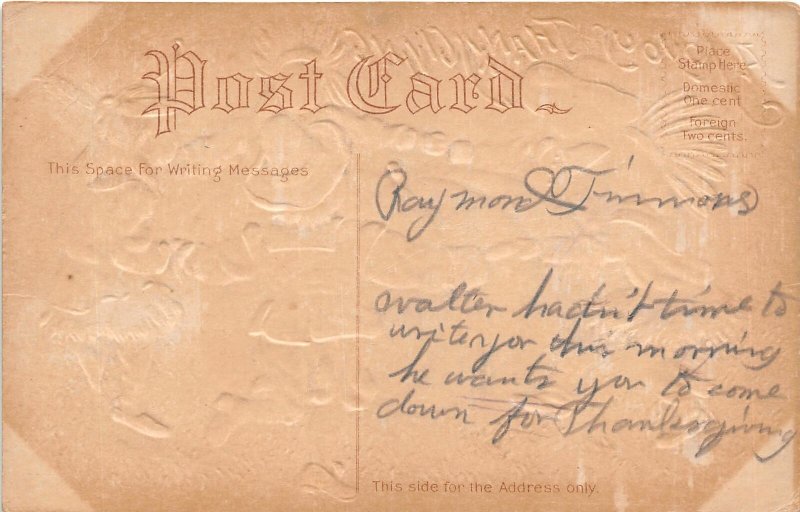 Post Card
Place
Stamp Here
Domestic
One cent
Foreign
Two cents.
This Space For Writing Messages
Raymond Timmons
walter hadn't time to
write you this morning
he wants you to come
down for Thanksgiving
This side for the Address only.